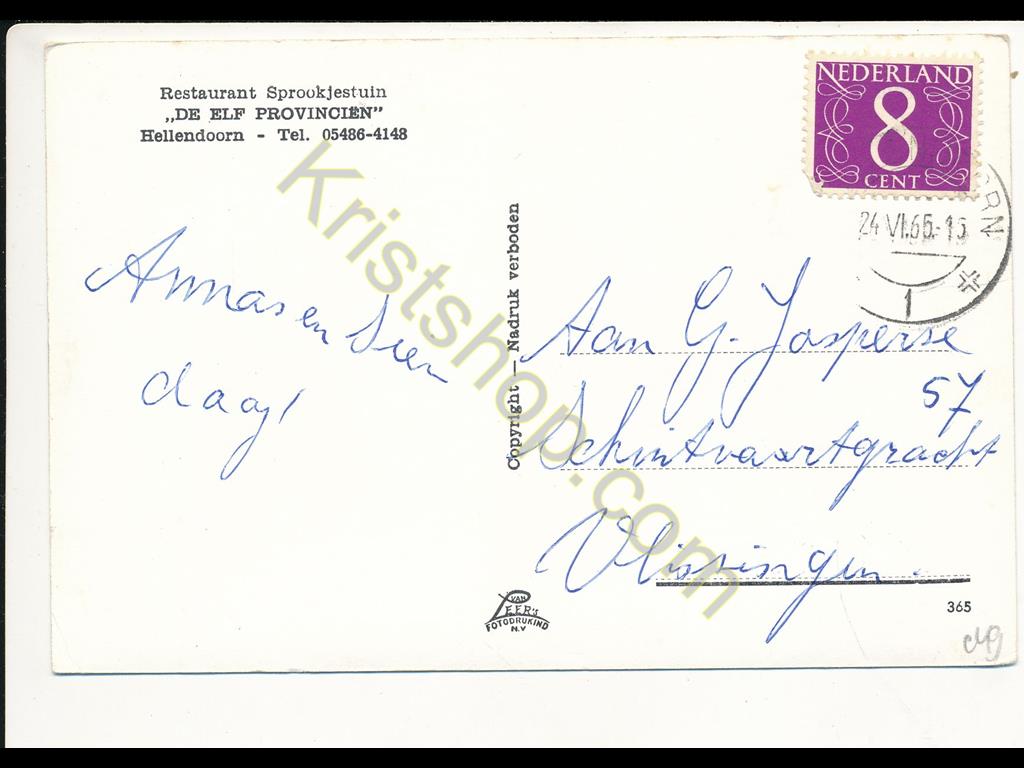 Restaurant Sprookjestuin
„DE ELF PROVINCIËN”
Hellendoorn - Tel. 05486-4148
NEDERLAND
8
CENT
ORN
24 VI.66.-15
1
Annas en Sien
daag!
Copyright — Nadruk verboden
Aan G. Jasperse
57
Schuitvaartgracht
Vlissingen.
VAN
LEER's
FOTODRUKIND
N.V
365
Kristshop.com